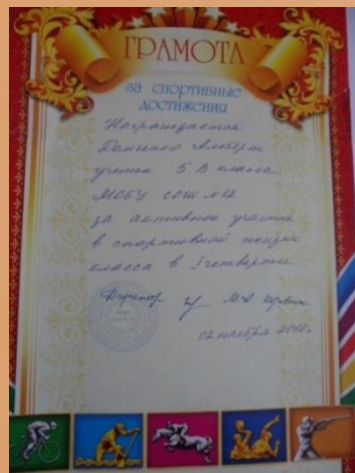 ГРАМОТА
за спортивные
достижения
Награждается
Альберт
ученик 5 В класса
МОБУ СОШ №12
за активное участие
в спортивной жизни
класса в I четверти
Директор М.А.
02 ноября